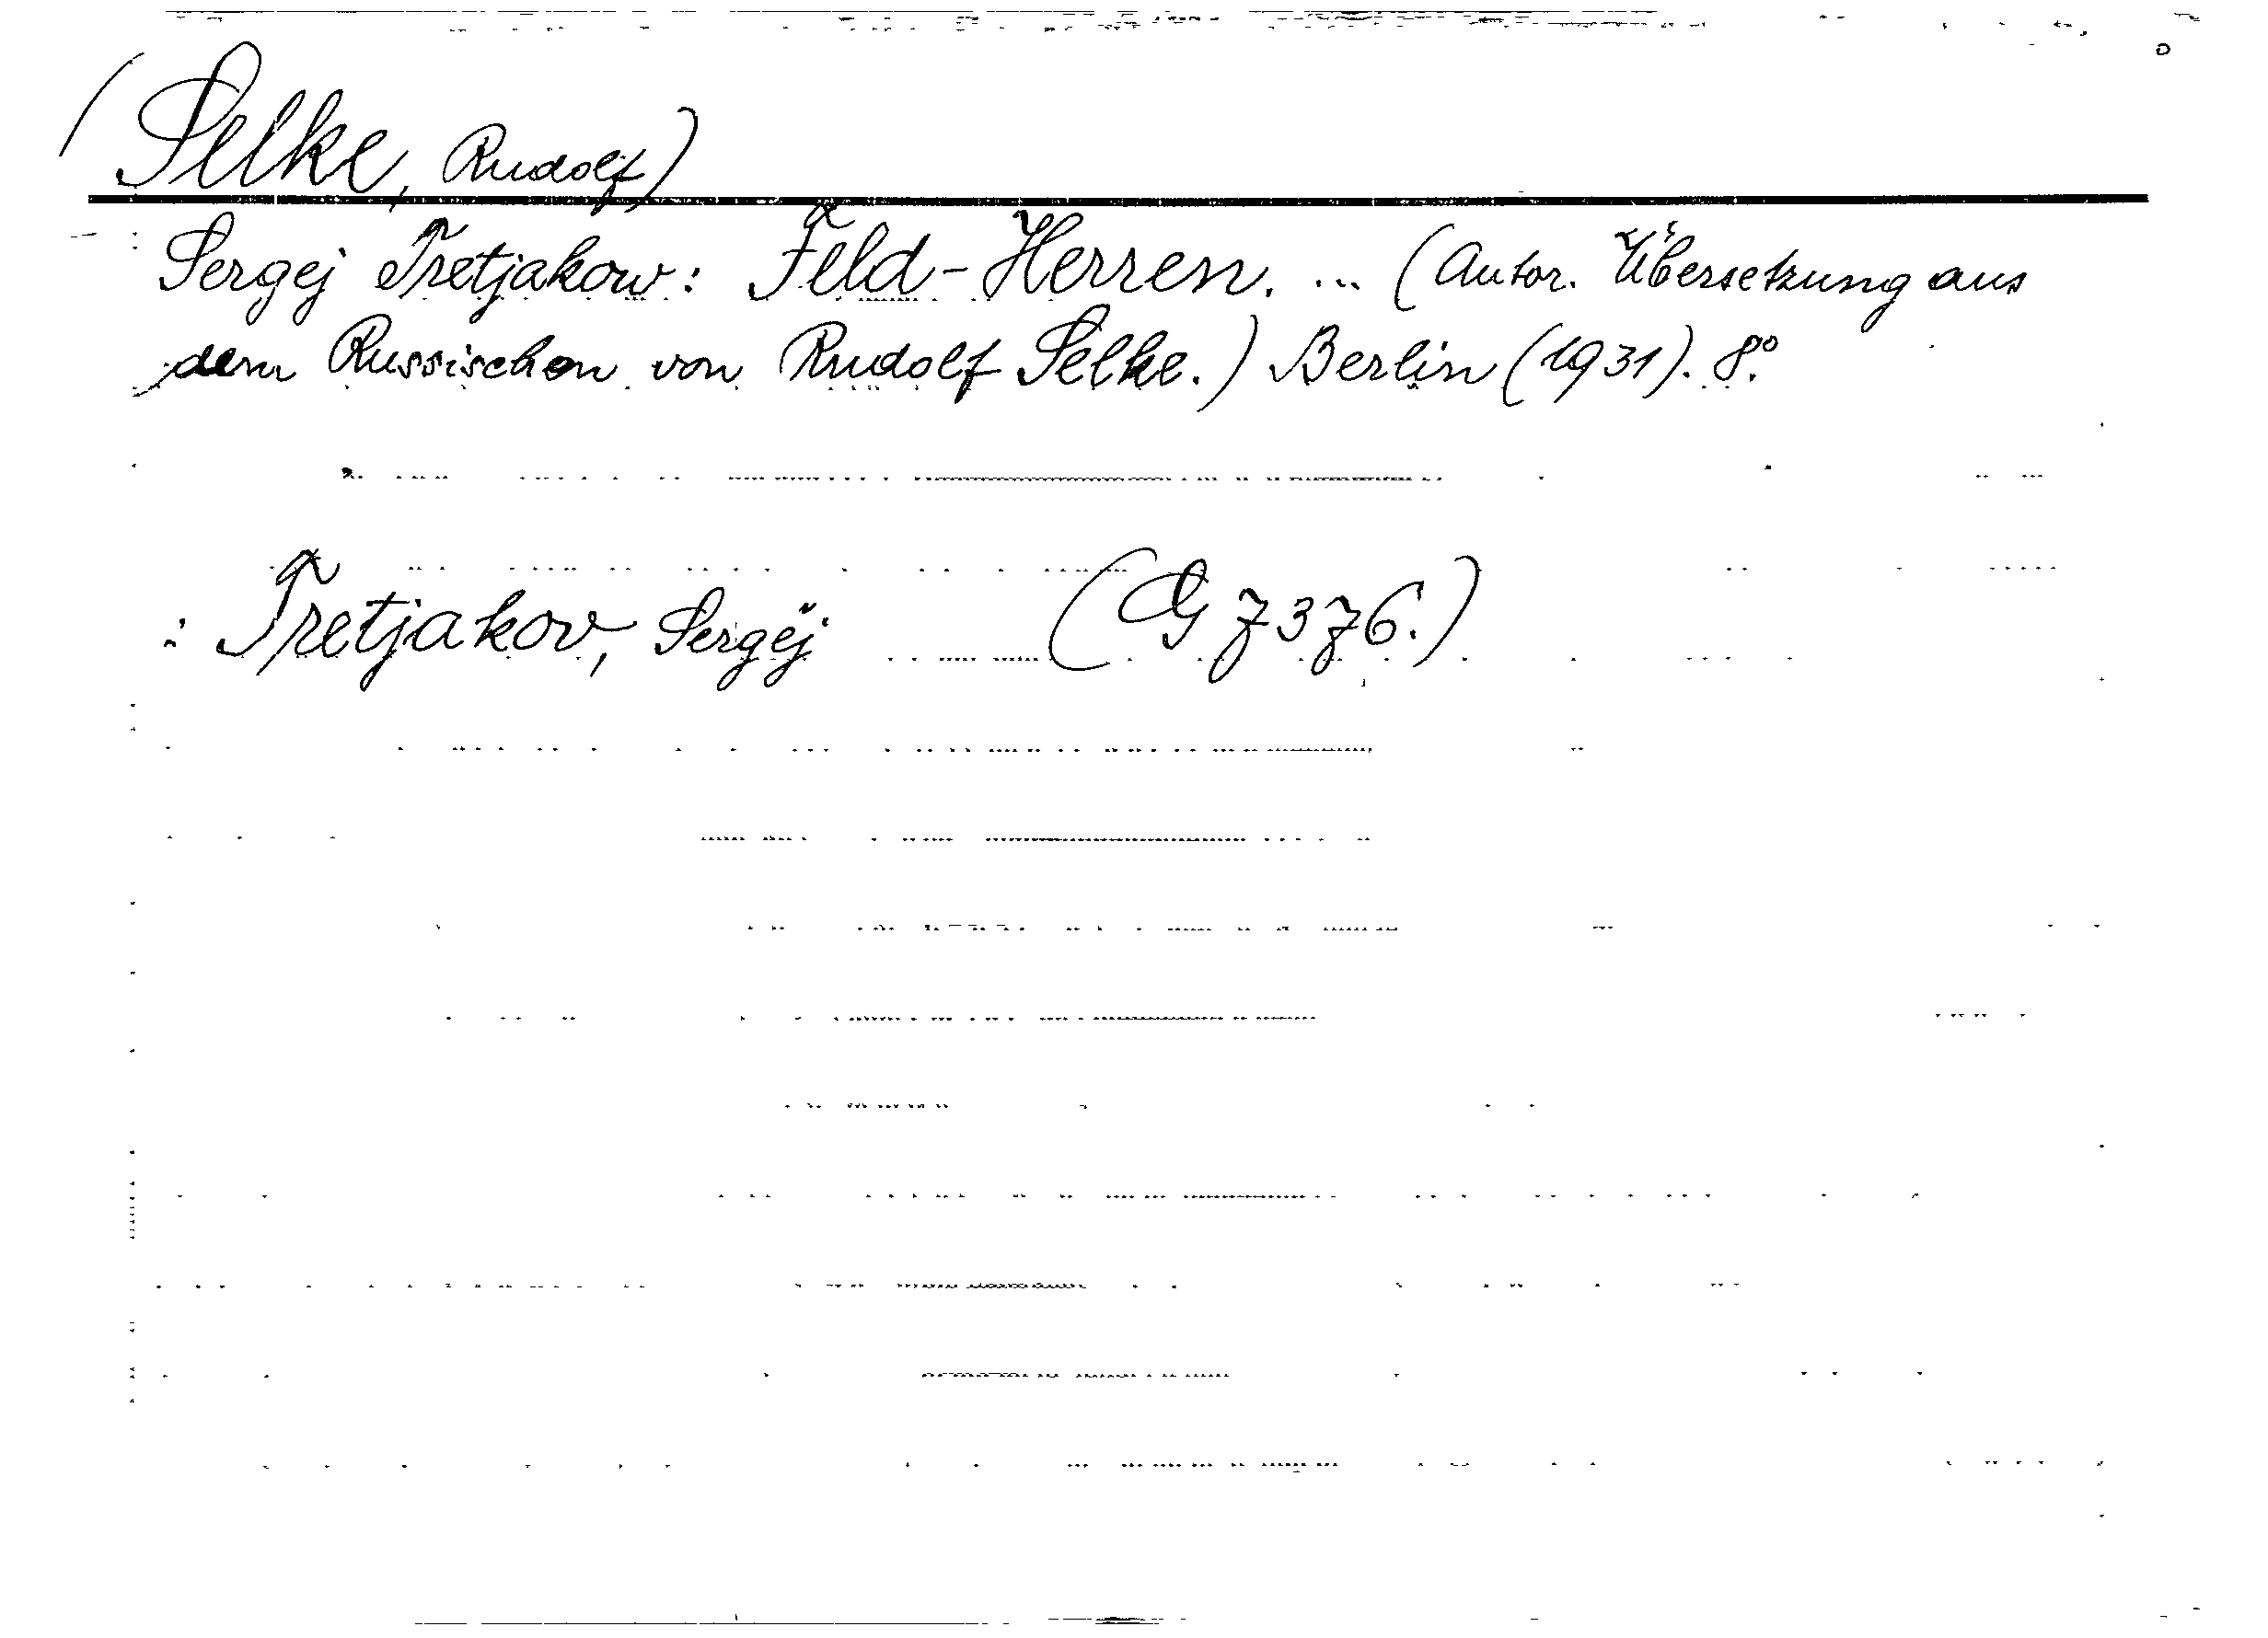 (Selke, Rudolf)
Sergej Tretjakow: Feld-Herren. ... (Autor. Übersetzung aus
dem Russischen von Rudolf Selke.) Berlin (1931). 8.°
: Tretjakov, Sergěj (G 7376.)